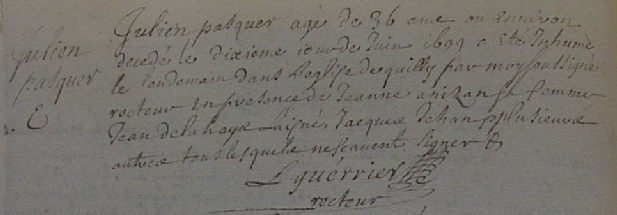 Julien pasquer
Julien pasquer agé de 36 ans ou Environ
decedé le dixieme jour de Juin 1699 a eté Inhumé
le lendemain dans l'eglise de quilly par moy soussigné
recteur En presance de Jeanne anizan sa femme
Jean de la haye L'aisné, Jacques Jehan plusieurs
autres tous lesquels ne scavent signer &
L guérrier
recteur